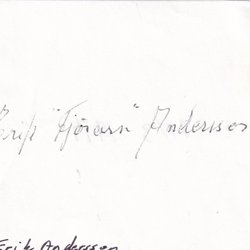 Erik Andersson
Erik Andersson